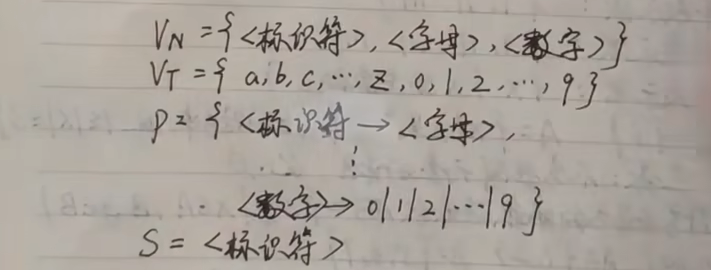 VN = { <标识符>, <字母>, <数字> }
VT = { a, b, c, ⋯, z, 0, 1, 2, ⋯, 9 }
P = { <标识符 → <字母>,
⋮
<数字> → 0|1|2|⋯|9 }
S = <标识符>